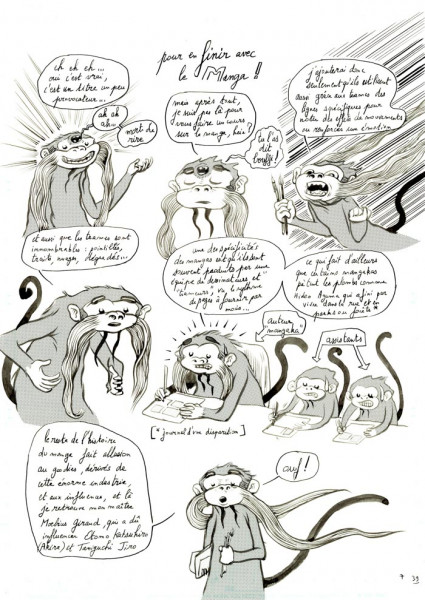 pour en finir avec
le Manga !!
eh eh eh...
oui c'est vrai,
c'est un titre un peu
provocateur...
ah ah
ahu
mort de
rire
mais après tout,
je suis pas là pour
vous faire un cours
sur le manga, hein!
tu l'as
dit
bouffi!
j'ajouterai donc
seulement qu'ils utilisent
aussi grâce aux trames des
lignes spécifiques pour
noter des effets de mouvements
ou renforcer une émotion
et aussi que les trames sont
innombrables : pointillés,
traits, nuages, dégradés...
une des spécificités
des mangas est qu'ils sont
souvent produits par une
équipe de dessinateurs et
trameurs, vu le rythme
de pages à fournir par
mois...
ce qui fait d'ailleurs
que certains mangakas
pètent les plombs comme
Hideo Azuma qui a fini par
vivre dans la rue et en
auteur
mangaka
assistants
[* "Journal d'une disparition]
le reste de l'histoire
du manga fait allusion
au goodies, dérivés de
cette énorme industrie,
et aux influences, et là
je retrouve mon maître
Moebius Giraud, qui a dû
influencer Otomo Katsuhiro
(Akira) et Taniguchi Jiro
ouf!
39